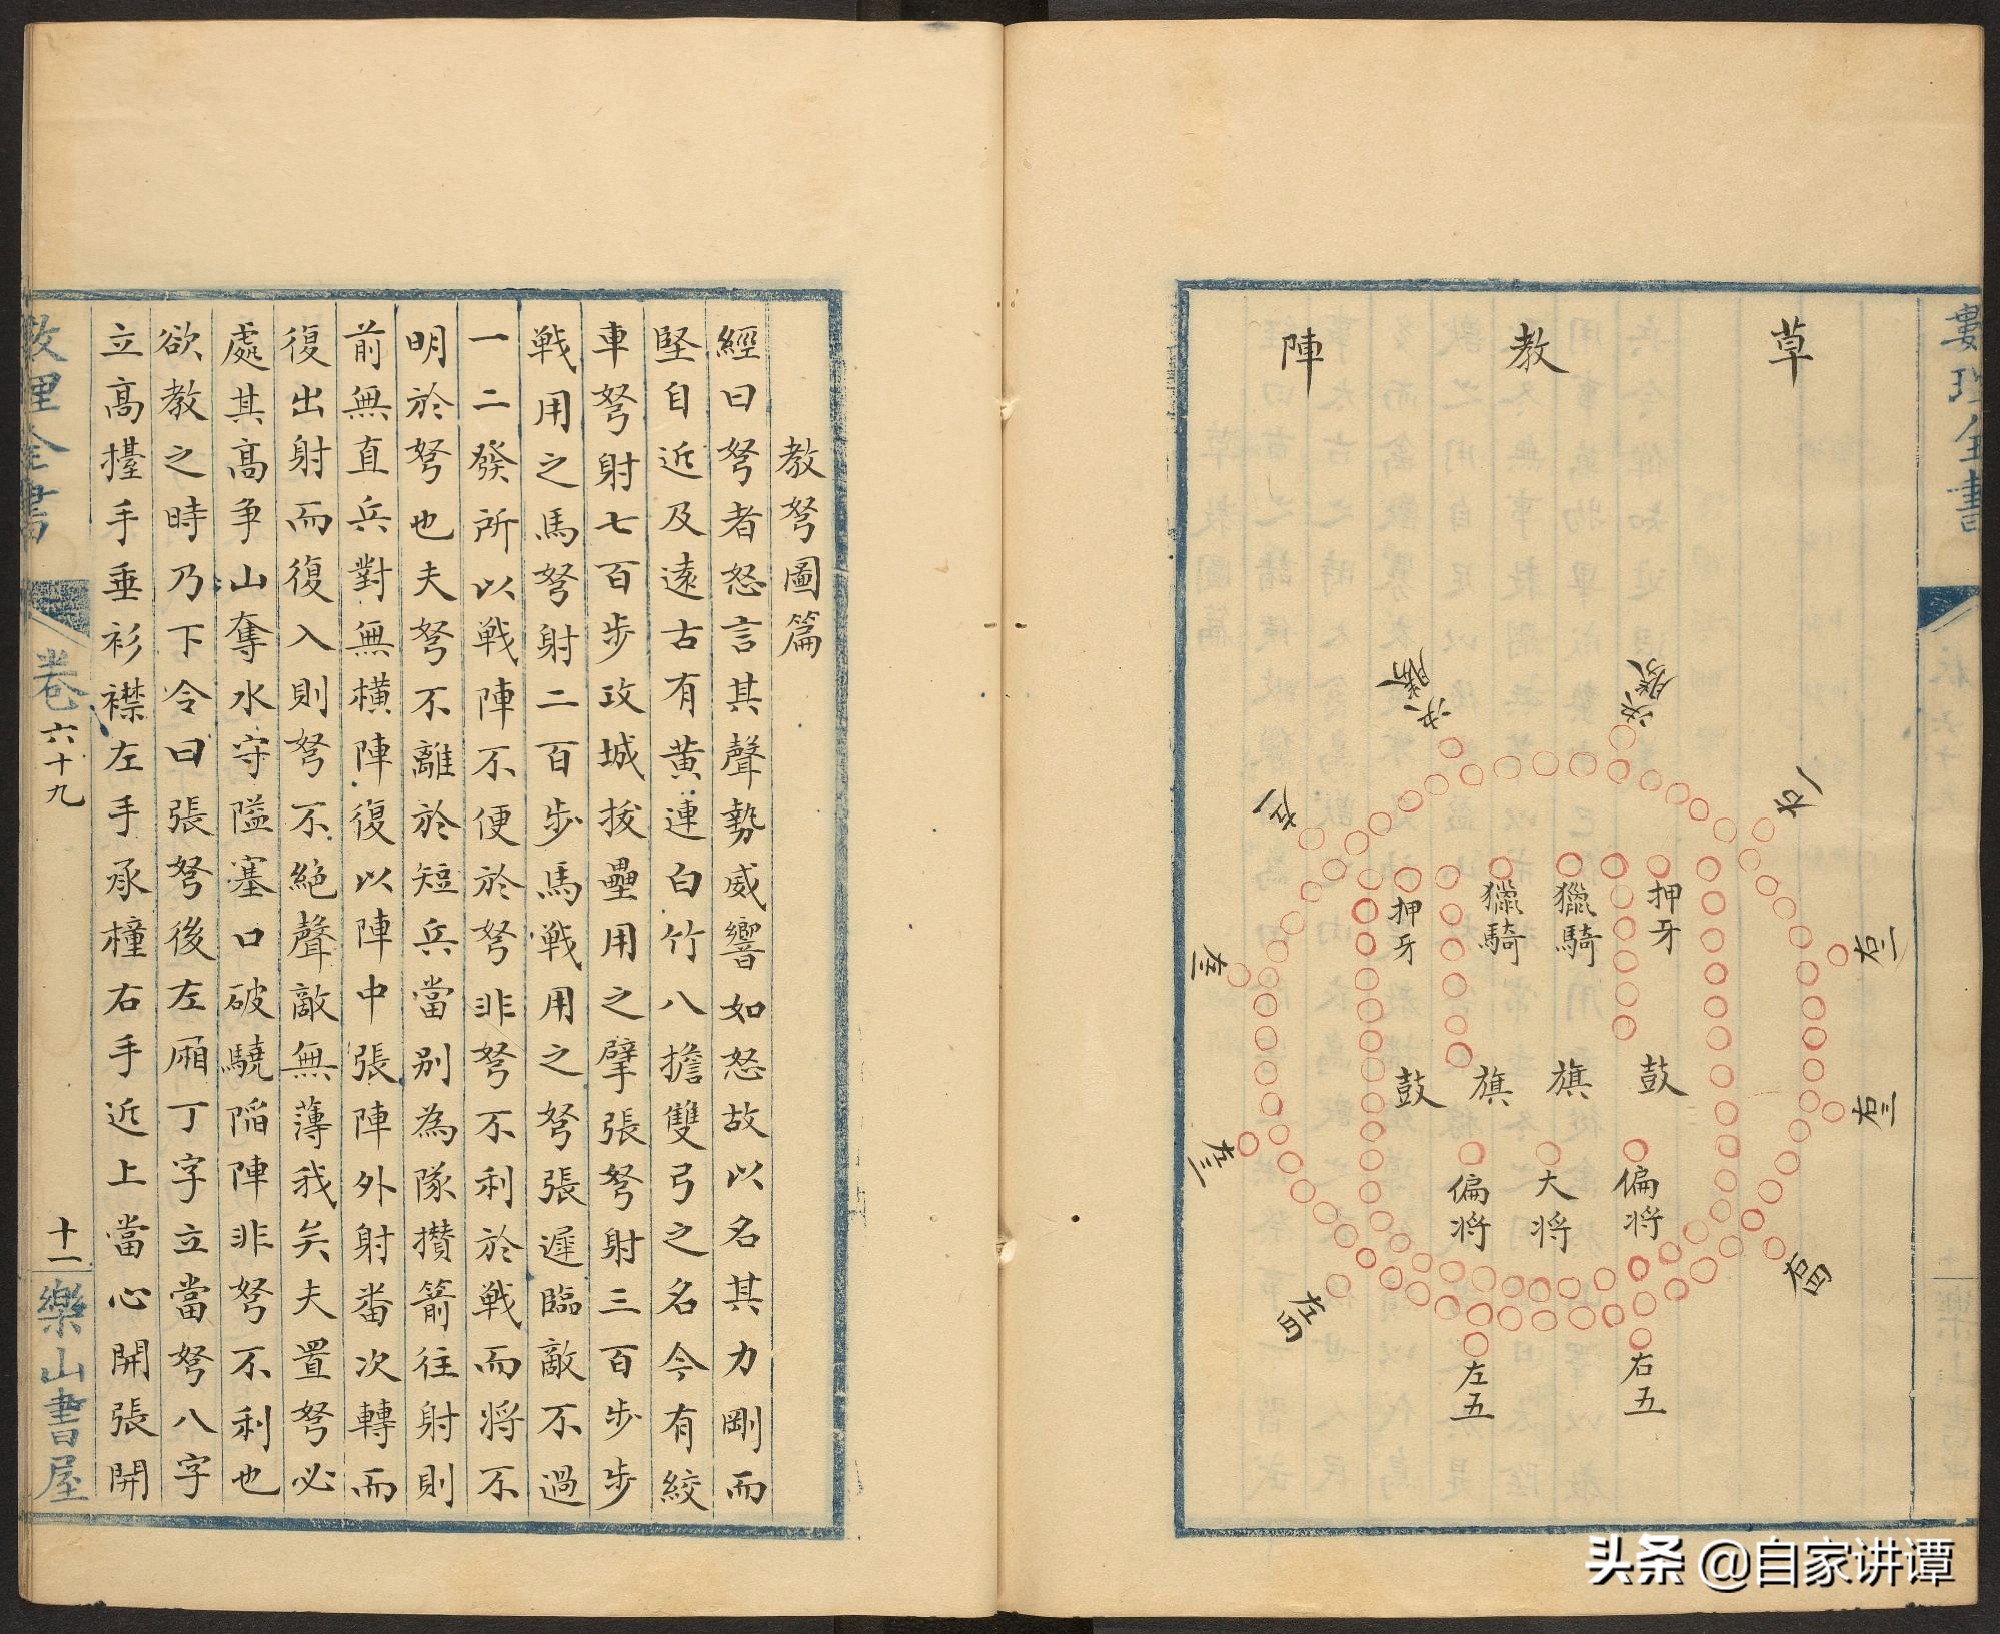 草教陣
決勝
決勝
右一
左一
右二
左二
右三
左三
右四
左四
右五
左五
押牙
獵騎
獵騎
押牙
鼓
旗
旗
鼓
偏将
大将
偏将
數理全書
教弩圖篇
經曰弩者怒言其聲勢威響如怒故以名其力剛而
堅自近及遠古有黄連白竹八擔雙弓之名今有絞
車弩射七百步攻城拔壘用之擘張弩射三百步步
戦用之馬弩射二百步馬戦用之弩張遲臨敵不過
一二發所以戦陣不便於弩非弩不利於戦而将不
明於弩也夫弩不離於短兵當别為隊攅箭往射則
前無直兵對無横陣復以陣中張陣外射畨次轉而
復出射而復入則弩不絶聲敵無薄我矣夫置弩必
處其髙争山奪水守隘塞口破驍陷陣非弩不利也
欲教之時乃下令曰張弩後左廂丁字立當弩八字
立髙擡手垂衫襟左手承橦右手近上當心開張開
數理全書
卷六十九
十一
樂山書屋
头条 @自家讲谭